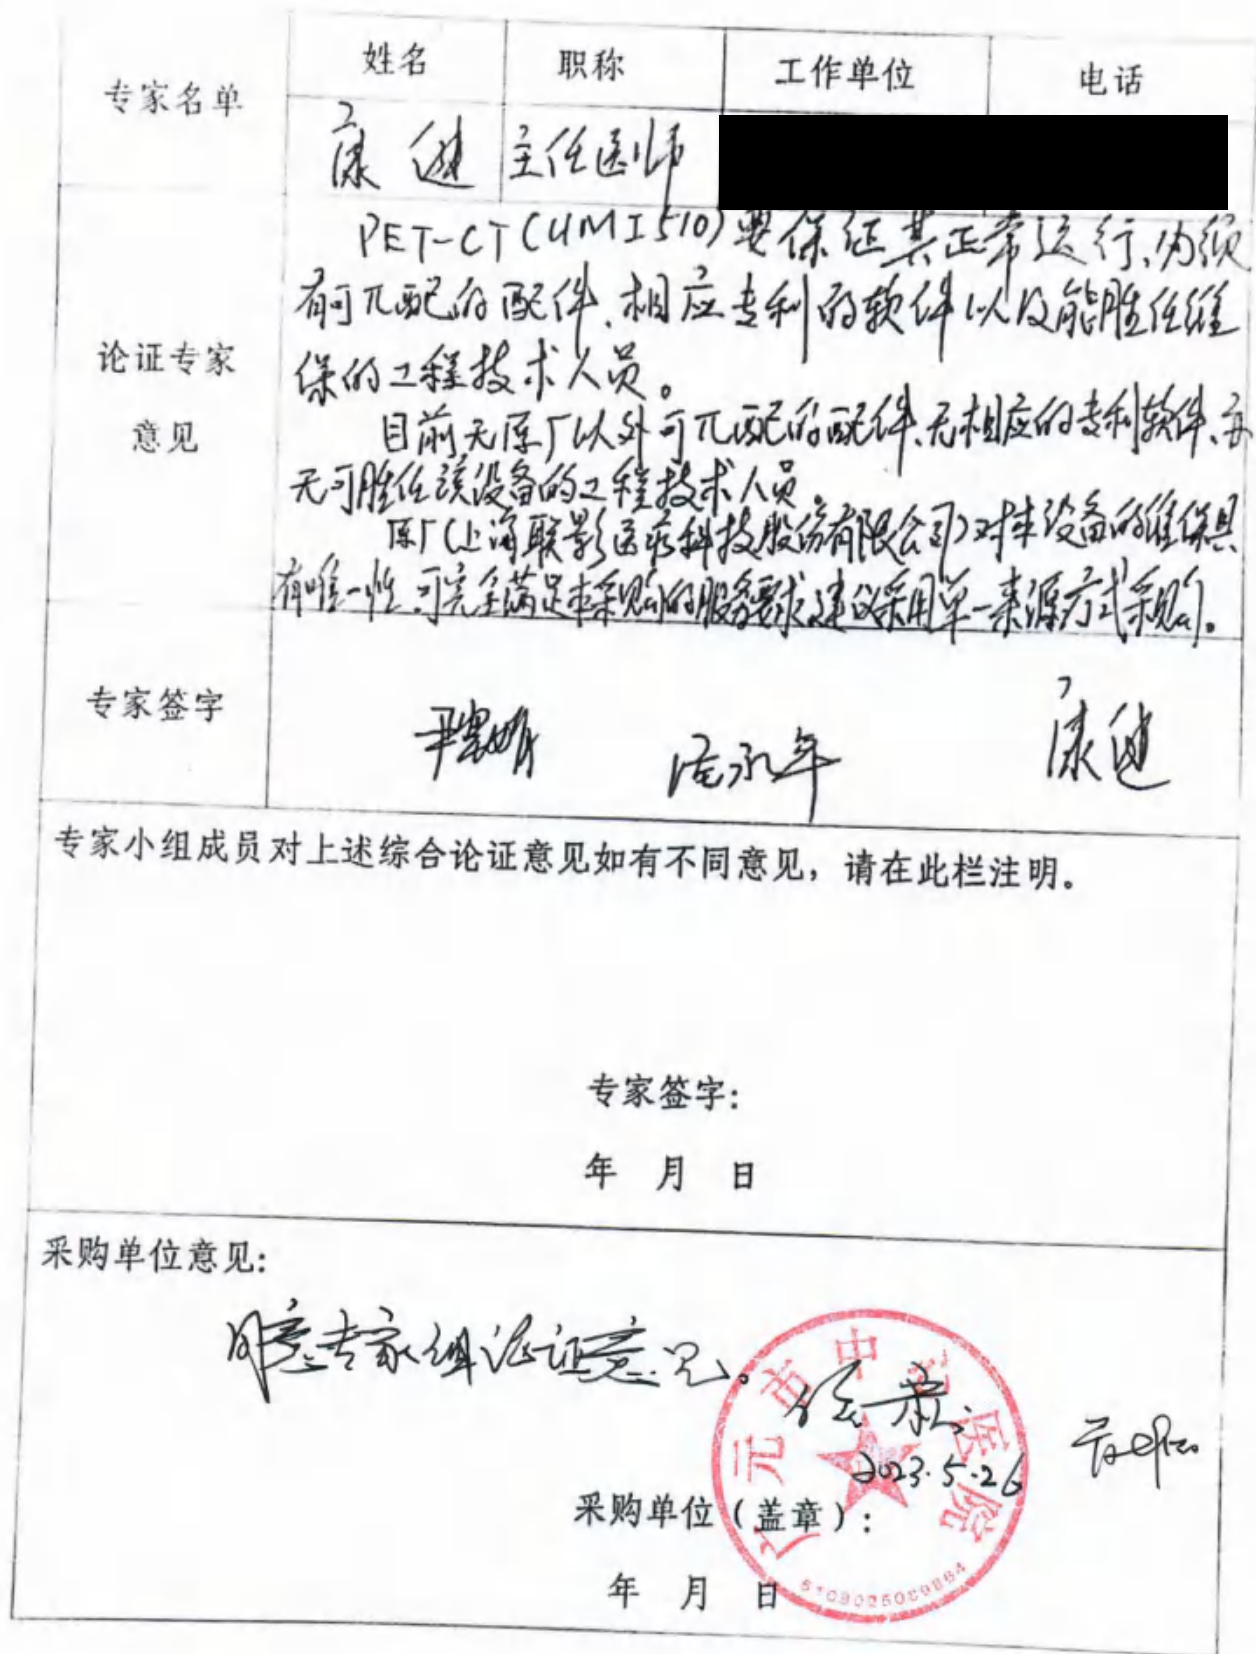 专家名单 姓名 职称 工作单位 电话
康健 主任医师
论证专家
意见
PET-CT(UMI510)要保证其正常运行,必须
有可匹配的配件、相应专利的软件以及能胜任维
保的工程技术人员。
目前无原厂以外可匹配的配件、无相应的专利软件、亦
无可胜任该设备的工程技术人员。
原厂(上海联影医疗科技股份有限公司)对本设备的维保具
有唯一性,可完全满足本采购的服务要求,建议采用单一来源方式采购。
专家签字 康健
专家小组成员对上述综合论证意见如有不同意见,请在此栏注明。
专家签字:
年 月 日
采购单位意见:
同意专家组论证意见。
2023.5.26
采购单位(盖章):
年 月 日
广元市中心医院